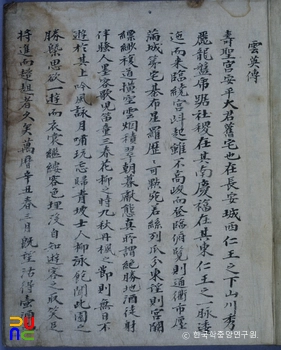 雲英傳
壽聖宮安平大君舊宅也在長安城西仁王之下山川秀
麗龍盤席踞社稷在其南慶福在其東仁王之一脉逶
迤而來臨繞宮斗起雖不高峻而登臨俯覽則通衢市廛
滿城第宅碁布星羅歷〻可數宛若絲列分東望則宮闕
縹緲複道橫空雲烟積翠朝暮獻態眞所謂絶勝地酒徒射
伴騷人墨客歌兒笛童三春花柳之時九秋丹楓之節則無日不
遊於其上吟風詠月嘯玩忘歸靑坡士人柳泳飽聞此園之
勝槩思欲一遊而衣裳襤縷容色埋沒自知遊客之取笑足
將進而趑趄者久矣萬曆辛丑春三月旣望沽得濁酒
ⓒ한국학중앙연구원